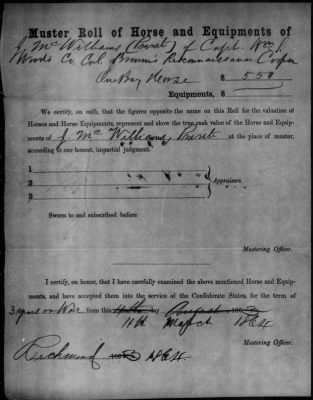 Muster Roll of Horse and Equipments of
J McWilliams (Private) of Capt. Wm J.
Woods Co. Col Reconnaissance Corps
One Bay Horse $ 550
Equipments, $
We certify, on oath, that the figures opposite the same on this Roll for the valuation of
Horses and Horse Equipments, represent and show the true cash value of the Horse and Equip-
ments of J McWilliams, Private at the place of muster,
according to our honest, impartial judgment.
1
2
3
Appraisers.
Sworn to and subscribed before
Mustering Officer.
I certify, on honor, that I have carefully examined the above mentioned Horse and Equip-
ments, and have accepted them into the service of the Confederate States, for the term of
3 years or War from this day August 186
11th March 1864
Mustering Officer.
Richmond 186 1864